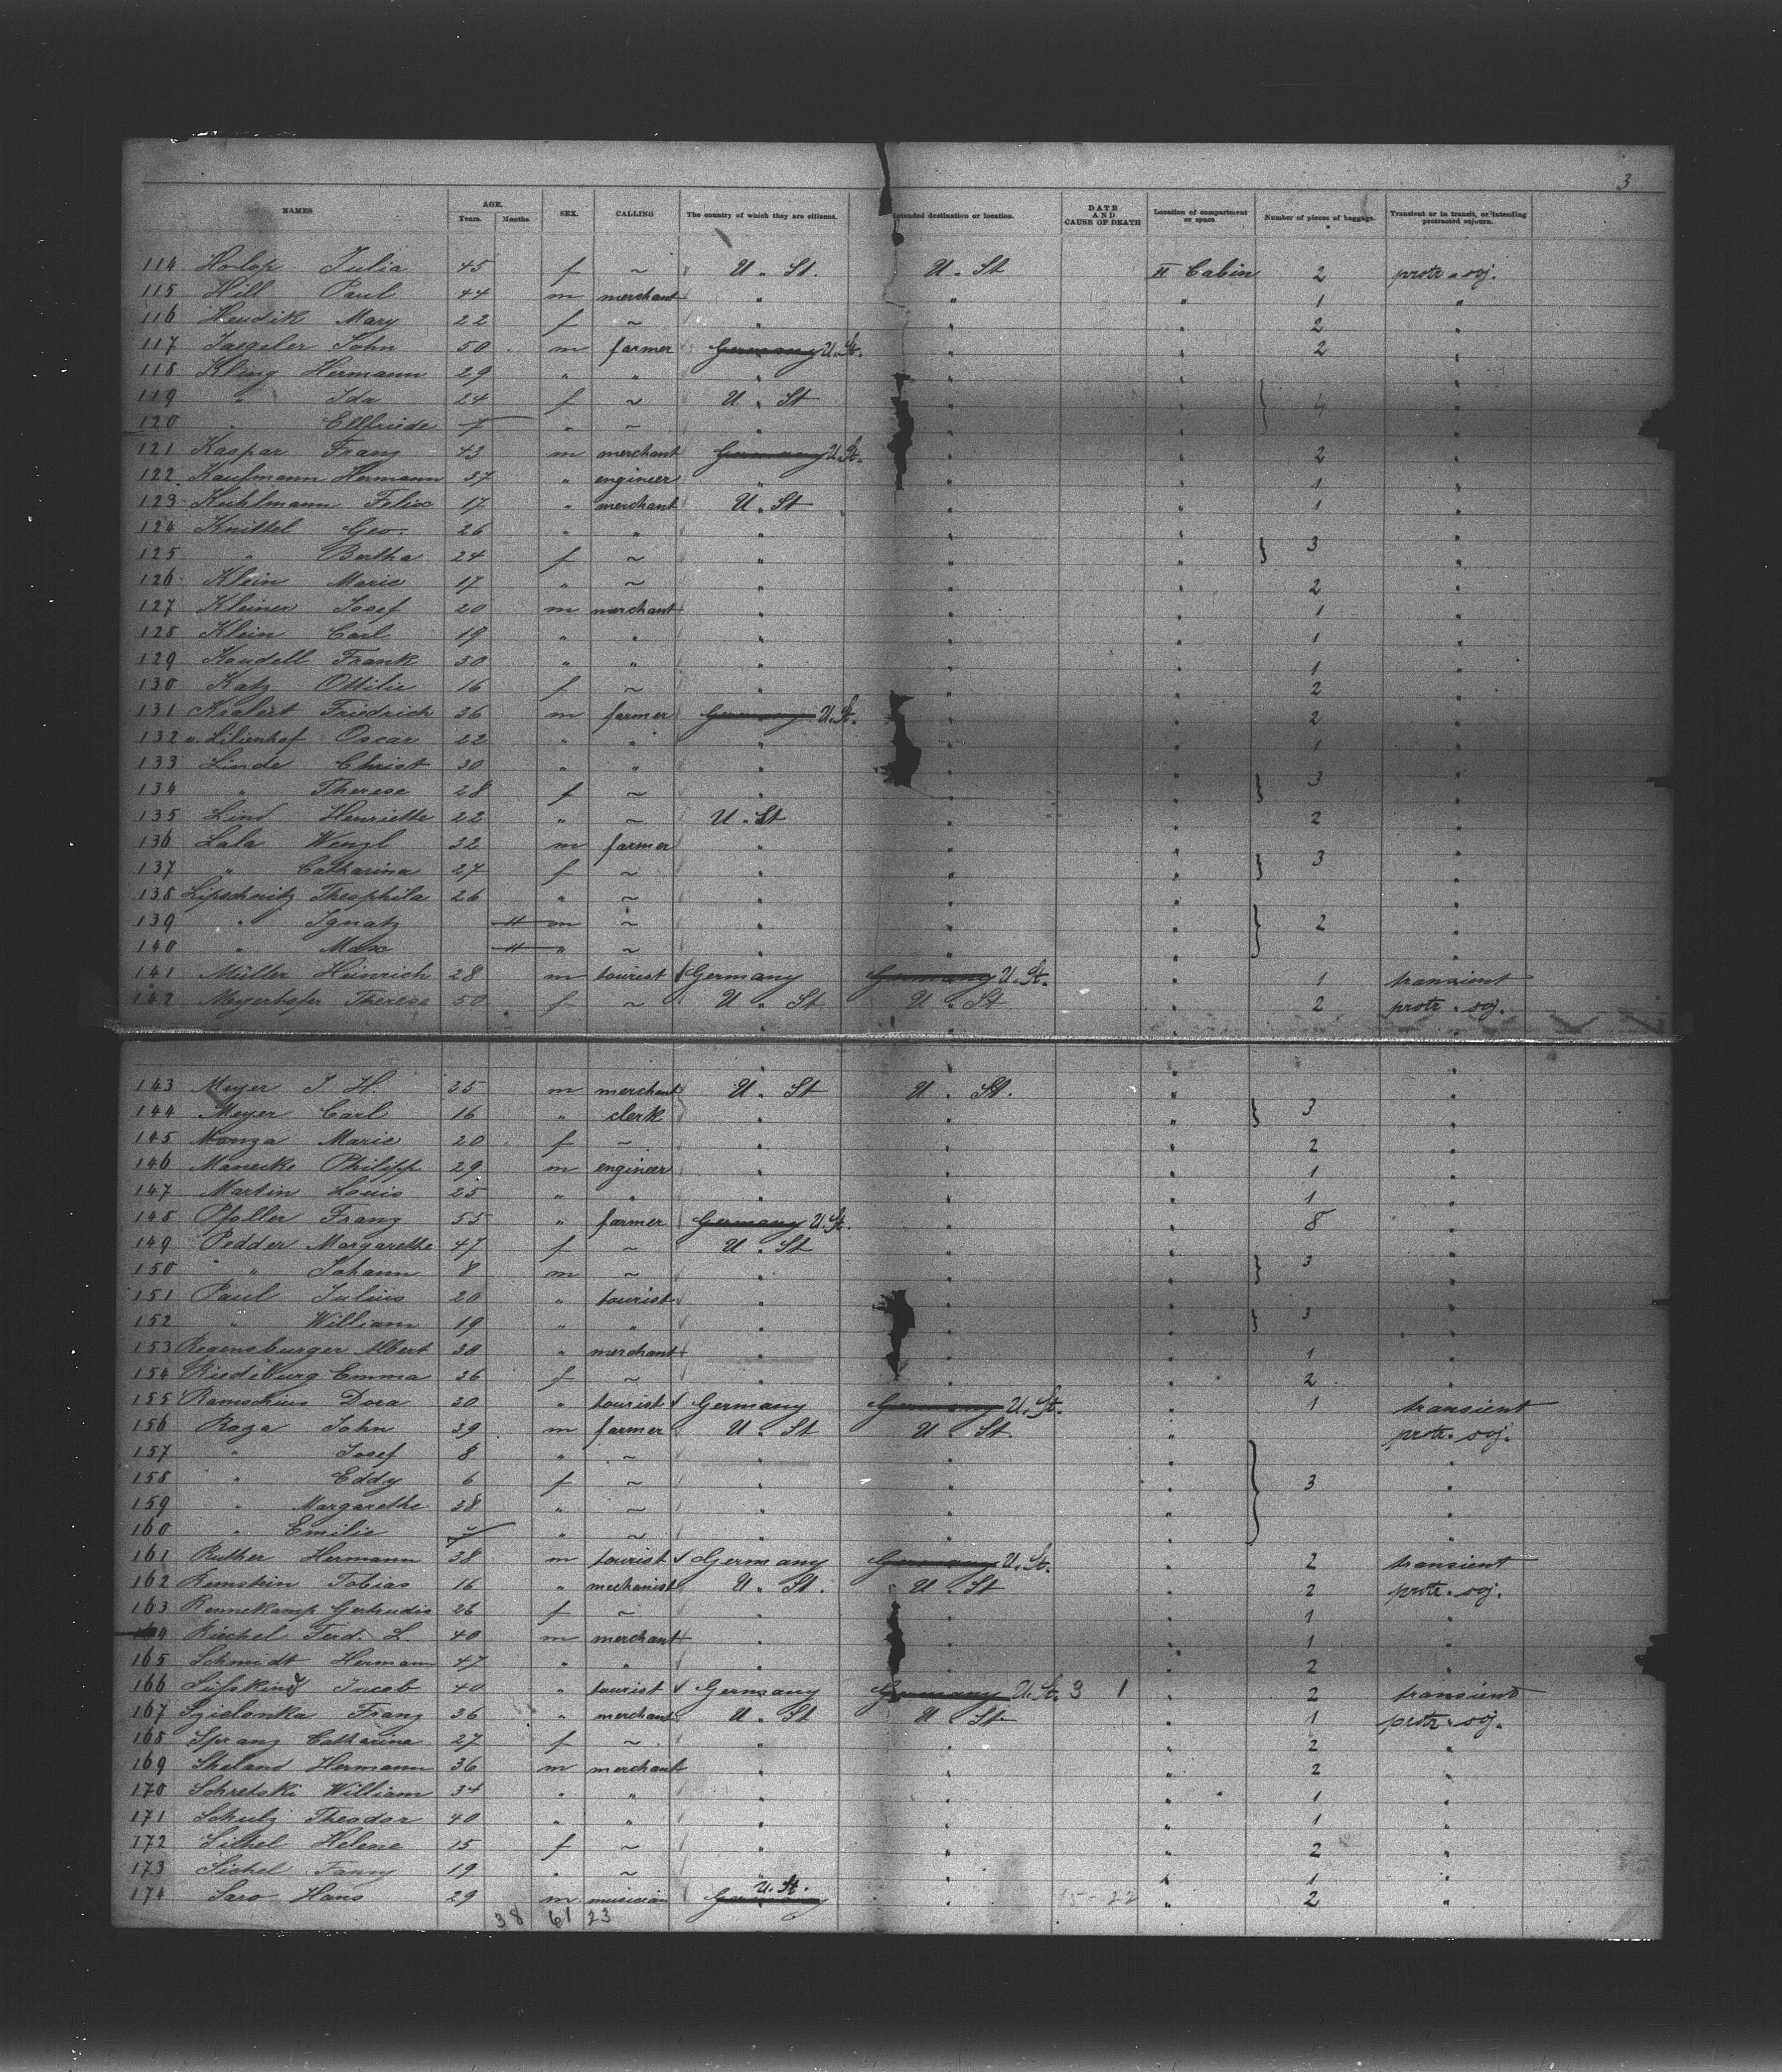 3
NAMES AGE. Years. Months. SEX. CALLING The country of which they are citizens. Intended destination or location. DATE AND CAUSE OF DEATH Location of compartment or space Number of pieces of baggage. Transient or in transit, or intending protracted sojourn.
114 Julia 45 f ~ U. St. U. St II Cabin 2 protr. soj.
115 Hill Paul 44 m merchant " " " 1 "
116 Hendik Mary 22 f ~ " " " 2 "
117 Jaegeler John 50 m farmer Germany U. St. " " 2 "
118 Kling Hermann 29 " " " " " "
119 " Ida 24 f ~ U. St " " 4 "
120 " Ellfriede " ~ " " " "
121 Kaspar Franz 43 m merchant Germany U. St. " " 2 "
122 Kaufmann Hermann 37 " engineer " " " 1 "
123 Kuhlmann Felix 17 " merchant U. St " " 1 "
124 Knittel Geo. 26 " " " " " "
125 " Bertha 24 f ~ " " " 3 "
126 Klein Marie 17 " ~ " " " 2 "
127 Kleiner Josef 20 m merchant " " " 1 "
128 Klein Carl 19 " " " " " 1 "
129 Kaudell Frank 50 " " " " " 1 "
130 Katz Ottilie 16 f ~ " " " 2 "
131 Friedrich 36 m farmer Germany U. St. " " 2 "
132 v. Lilienhof Oscar 22 " " " " " 1 "
133 Linde Christ 30 " " " " " "
134 " Therese 28 f ~ " " " 3 "
135 Lind Henriette 22 " ~ U. St " " 2 "
136 Lala Wenzl 32 m farmer " " " "
137 " Catharina 27 f ~ " " " 3 "
138 Lipschnitz Theophila 26 " ~ " " " "
139 " Ignatz 11 m ~ " " " 2 "
140 " Max 11 " ~ " " " "
141 Müller Heinrich 28 m tourist Germany Germany U. St. " 1 transient
142 Meyerhofer Therese 50 f ~ U. St U. St " 2 protr. soj.
143 Meyer J. H. 35 m merchant U. St U. St. " "
144 Meyer Carl 16 " clerk " " " 3 "
145 Monza Marie 20 f ~ " " " 2 "
146 Manecke Philipp 29 m engineer " " " 1 "
147 Martin Louis 25 " " " " " 1 "
148 Pfaller Franz 55 " farmer Germany U. St. " " 8 "
149 Pedder Margarethe 47 f ~ U. St " " "
150 " Johann 8 m ~ " " " 3 "
151 Paul Julius 20 " tourist " " " "
152 " William 19 " " " " " 3 "
153 Regensburger Albert 38 " merchant " " " 1 "
154 Riedeburg Emma 36 f ~ " " " 2 "
155 Ramschius Dora 20 " tourist Germany Germany U. St. " 1 transient
156 Roza John 39 m farmer U. St U. St. " protr. soj.
157 " Josef 8 " ~ " " " "
158 " Eddy 6 f ~ " " " 3 "
159 " Margarethe 38 " ~ " " " "
160 " Emilie " ~ " " " "
161 Ruther Hermann 38 m tourist Germany Germany U. St. " 2 transient
162 Remstein Tobias 16 " mechanist U. St. U. St " 2 protr. soj.
163 Rennekamp Gertrudis 26 f ~ " " " 1 "
164 Riechel Ferd. L. 40 m merchant " " " 1 "
165 Schmidt Hermann 47 " " " " " 2 "
166 Süsskind Jacob 40 " tourist Germany Germany U. St. 3 1 " 2 transient
167 Szielonka Franz 36 " merchant U. St U. St. " 1 protr. soj.
168 Sprang Catharina 27 f ~ " " " 2 "
169 Sheland Hermann 36 m merchant " " " 2 "
170 Schretski William 34 " " " " " 1 "
171 Schulz Theodor 40 " " " " " 1 "
172 Sichel Helene 15 f ~ " " " 2 "
173 Sichel Fanny 19 " ~ " " " 1 "
174 Saro Hans 29 m musician Germany U. St. " 15-22 " 2 "
38 61 23